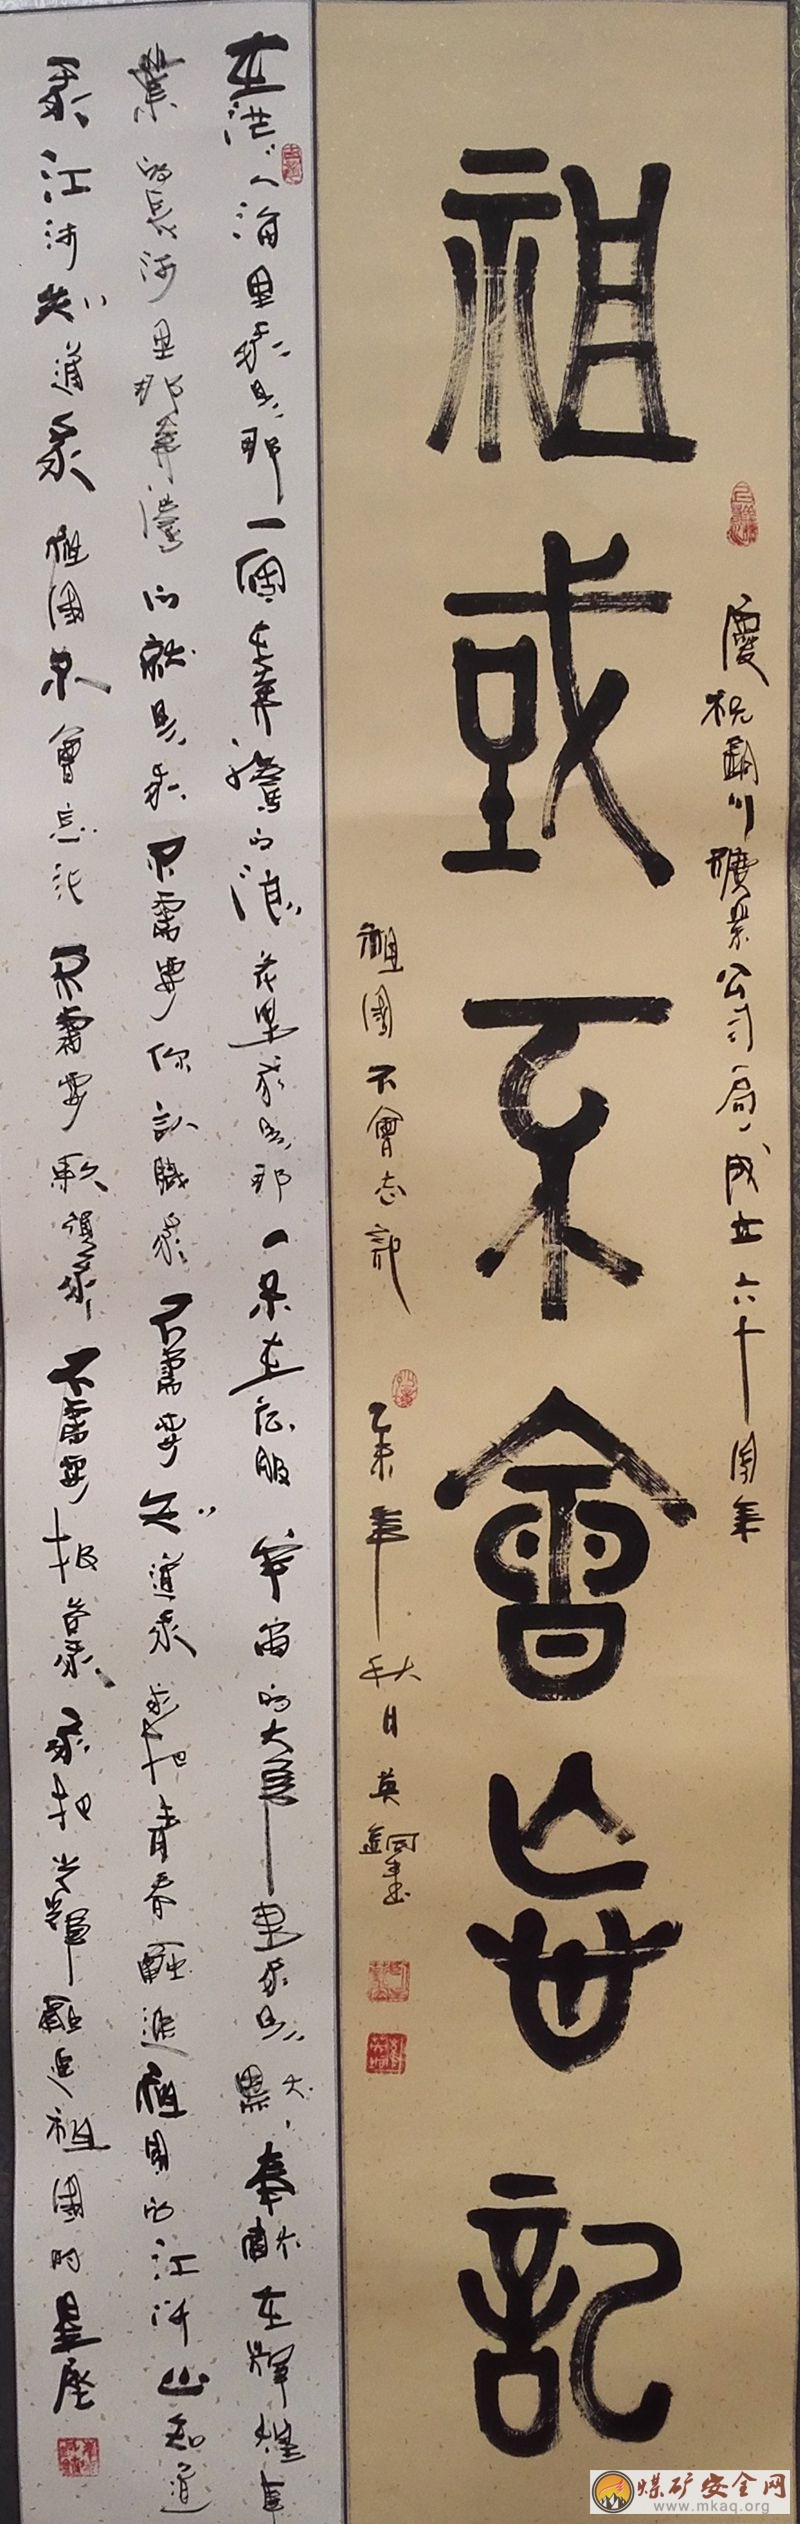 慶祝銅川礦業公司局成立六十周年
祖或不會忘記
祖國不會忘記
乙未年秋日英
在茫〻人海里我是那一個在奔騰的浪花里我是那一朵在征服宇宙的大軍里我是那默〻奉獻在輝煌事
業的長河里那奔騰的就是我不需要你認識我不需要知道我我把青春融進祖國的江河山知道
我江河知道我祖國不會忘記不需要歌頌我不需要報答我我把光輝融進祖國的星座
煤矿安全网
www.mkaq.org